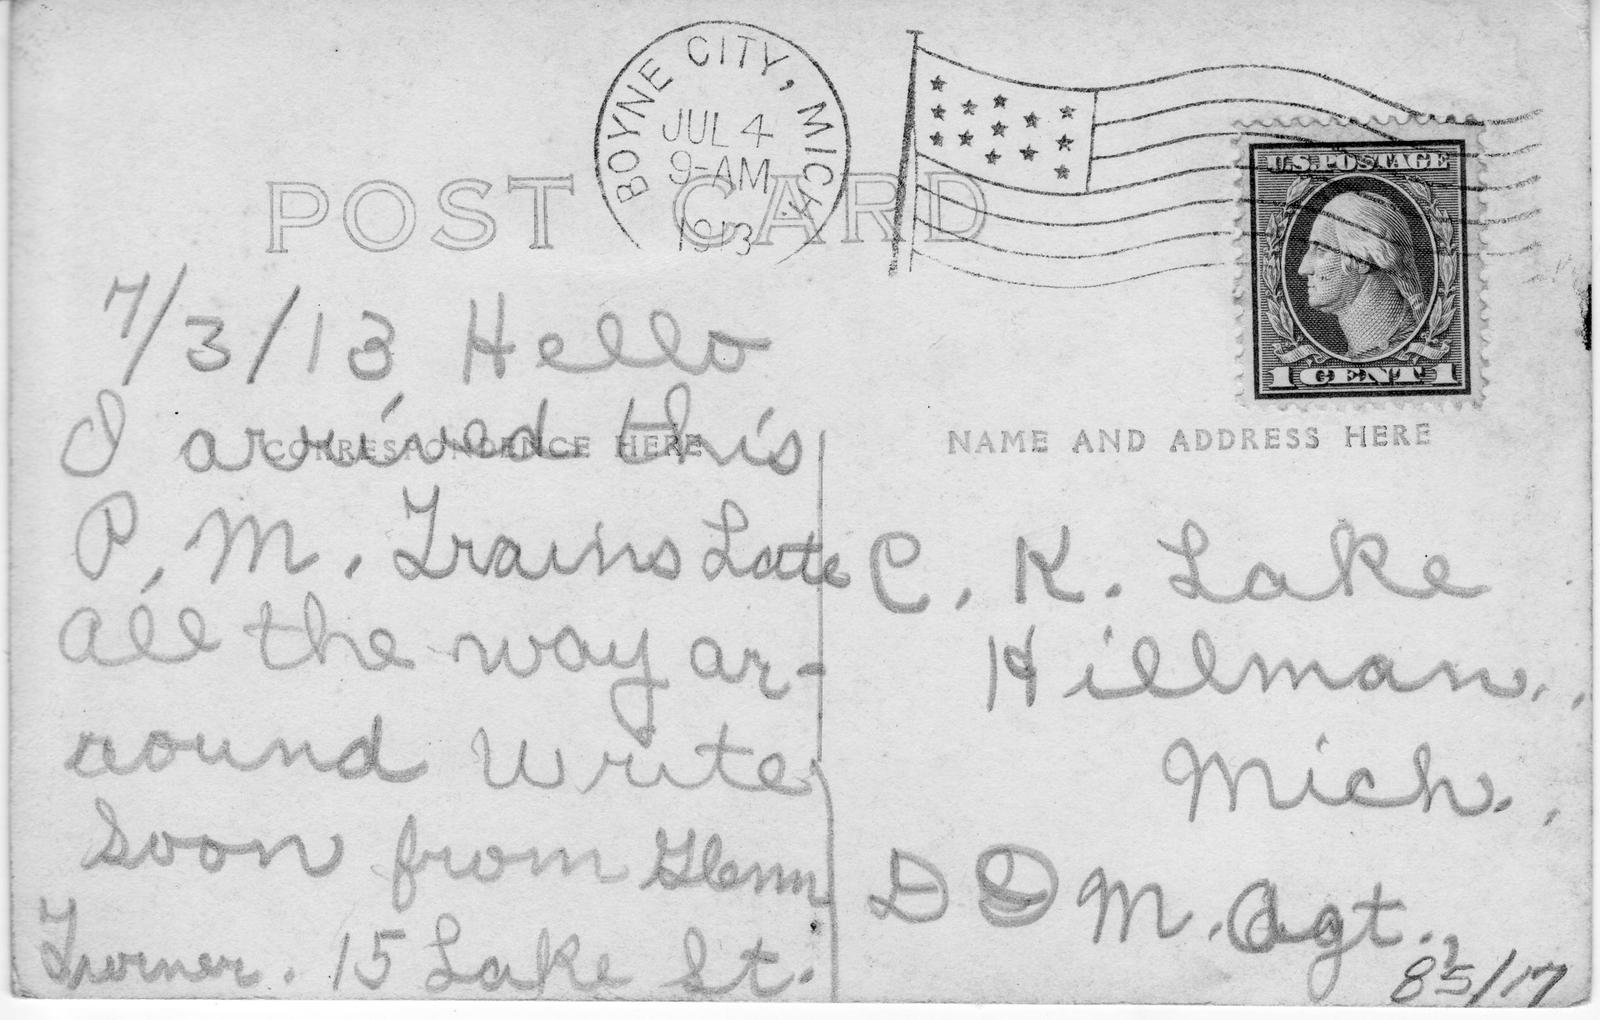 BOYNE CITY, MICH.
JUL 4
9-AM
1913
U.S. POSTAGE
1 CENT 1
POST CARD
CORRESPONDENCE HERE
NAME AND ADDRESS HERE
7/3/13 Hello
I arrived this
P. M. Trains Late
all the way ar-
round write
soon from Glenn
15 Lake St.
C. K. Lake
Hillman.,
Mich.,
D D M. Agt.